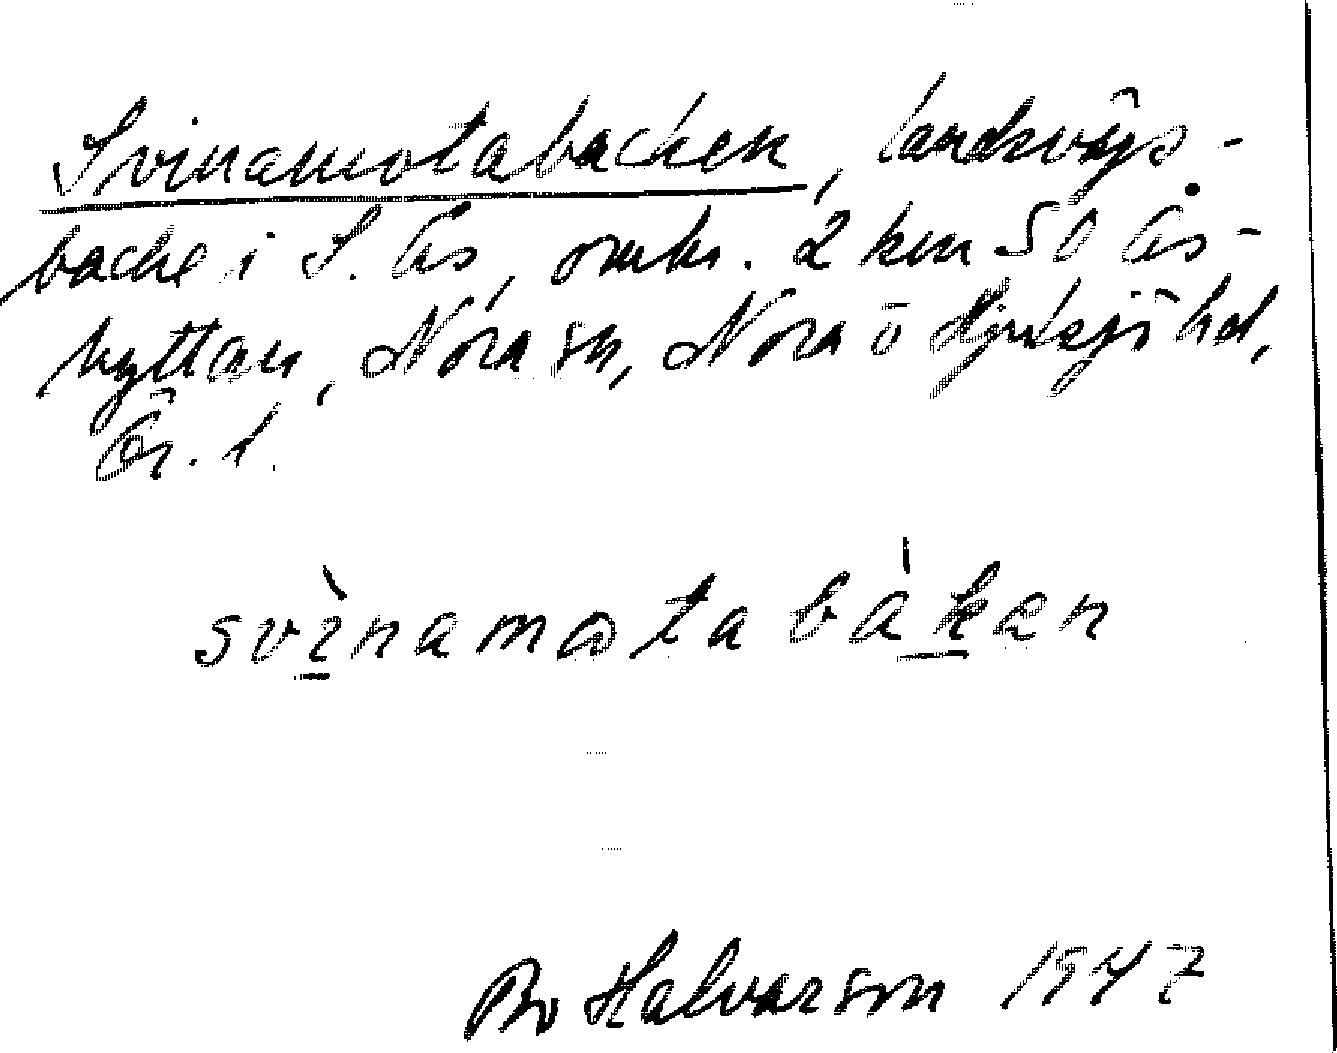 Svinamotabacken, landsvägs-
backe i S. Ås, omkr. 2 km SO Ås-
hyttan, Nora sn, Nora o Hjulsjö hd,
Ör. l.
svìnamɷta bàkən
Bo Halvarson 1947